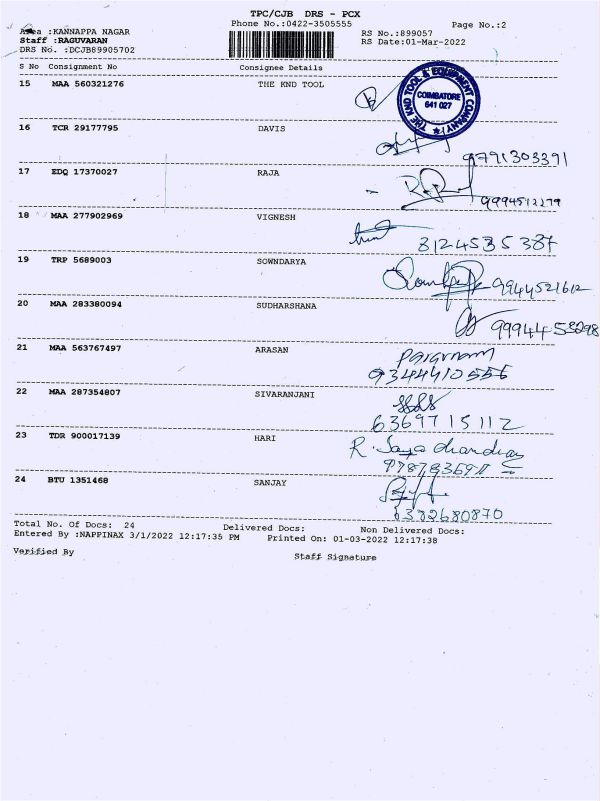 TPC/CJB DRS - PCX
Phone No.:0422-3505555
Page No.:2
Area :KANNAPPA NAGAR
RS No.:899057
Staff :RAGUVARAN
RS Date:01-Mar-2022
DRS No. :DCJB89905702
S No Consignment No Consignee Details
15 MAA 560321276 THE KND TOOL
THE KND TOOL & EQUIPMENT COMPANY
COIMBATORE
641 027
16 TCR 29177795 DAVIS
9791303391
17 EDQ 17370027 RAJA
9994512279
18 MAA 277902969 VIGNESH
8124535387
19 TRP 5689003 SOWNDARYA
9944521612
20 MAA 283380094 SUDHARSHANA
21 MAA 563767497 ARASAN
9344410556
22 MAA 287354807 SIVARANJANI
6369715112
23 TDR 900017139 HARI
24 BTU 1351468 SANJAY
6382680870
Total No. Of Docs: 24 Delivered Docs: Non Delivered Docs:
Entered By :NAPPINAX 3/1/2022 12:17:35 PM Printed On: 01-03-2022 12:17:38
Verified By Staff Signature